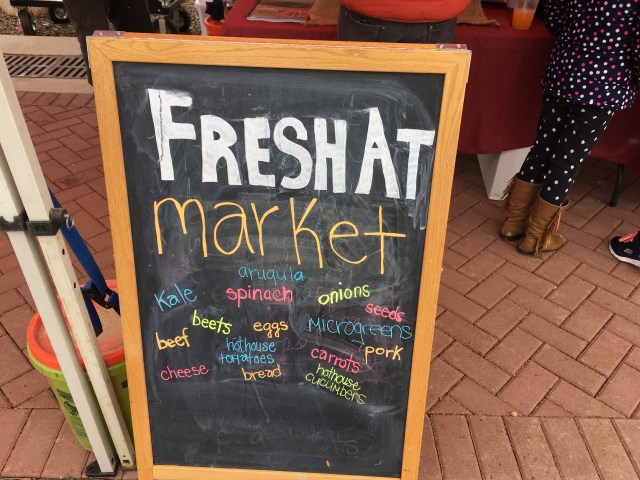 FRESH AT
market
arugula
Kale spinach onions seeds
beets eggs Microgreens
beef hothouse tomatoes carrots pork
cheese bread hothouse cucumbers